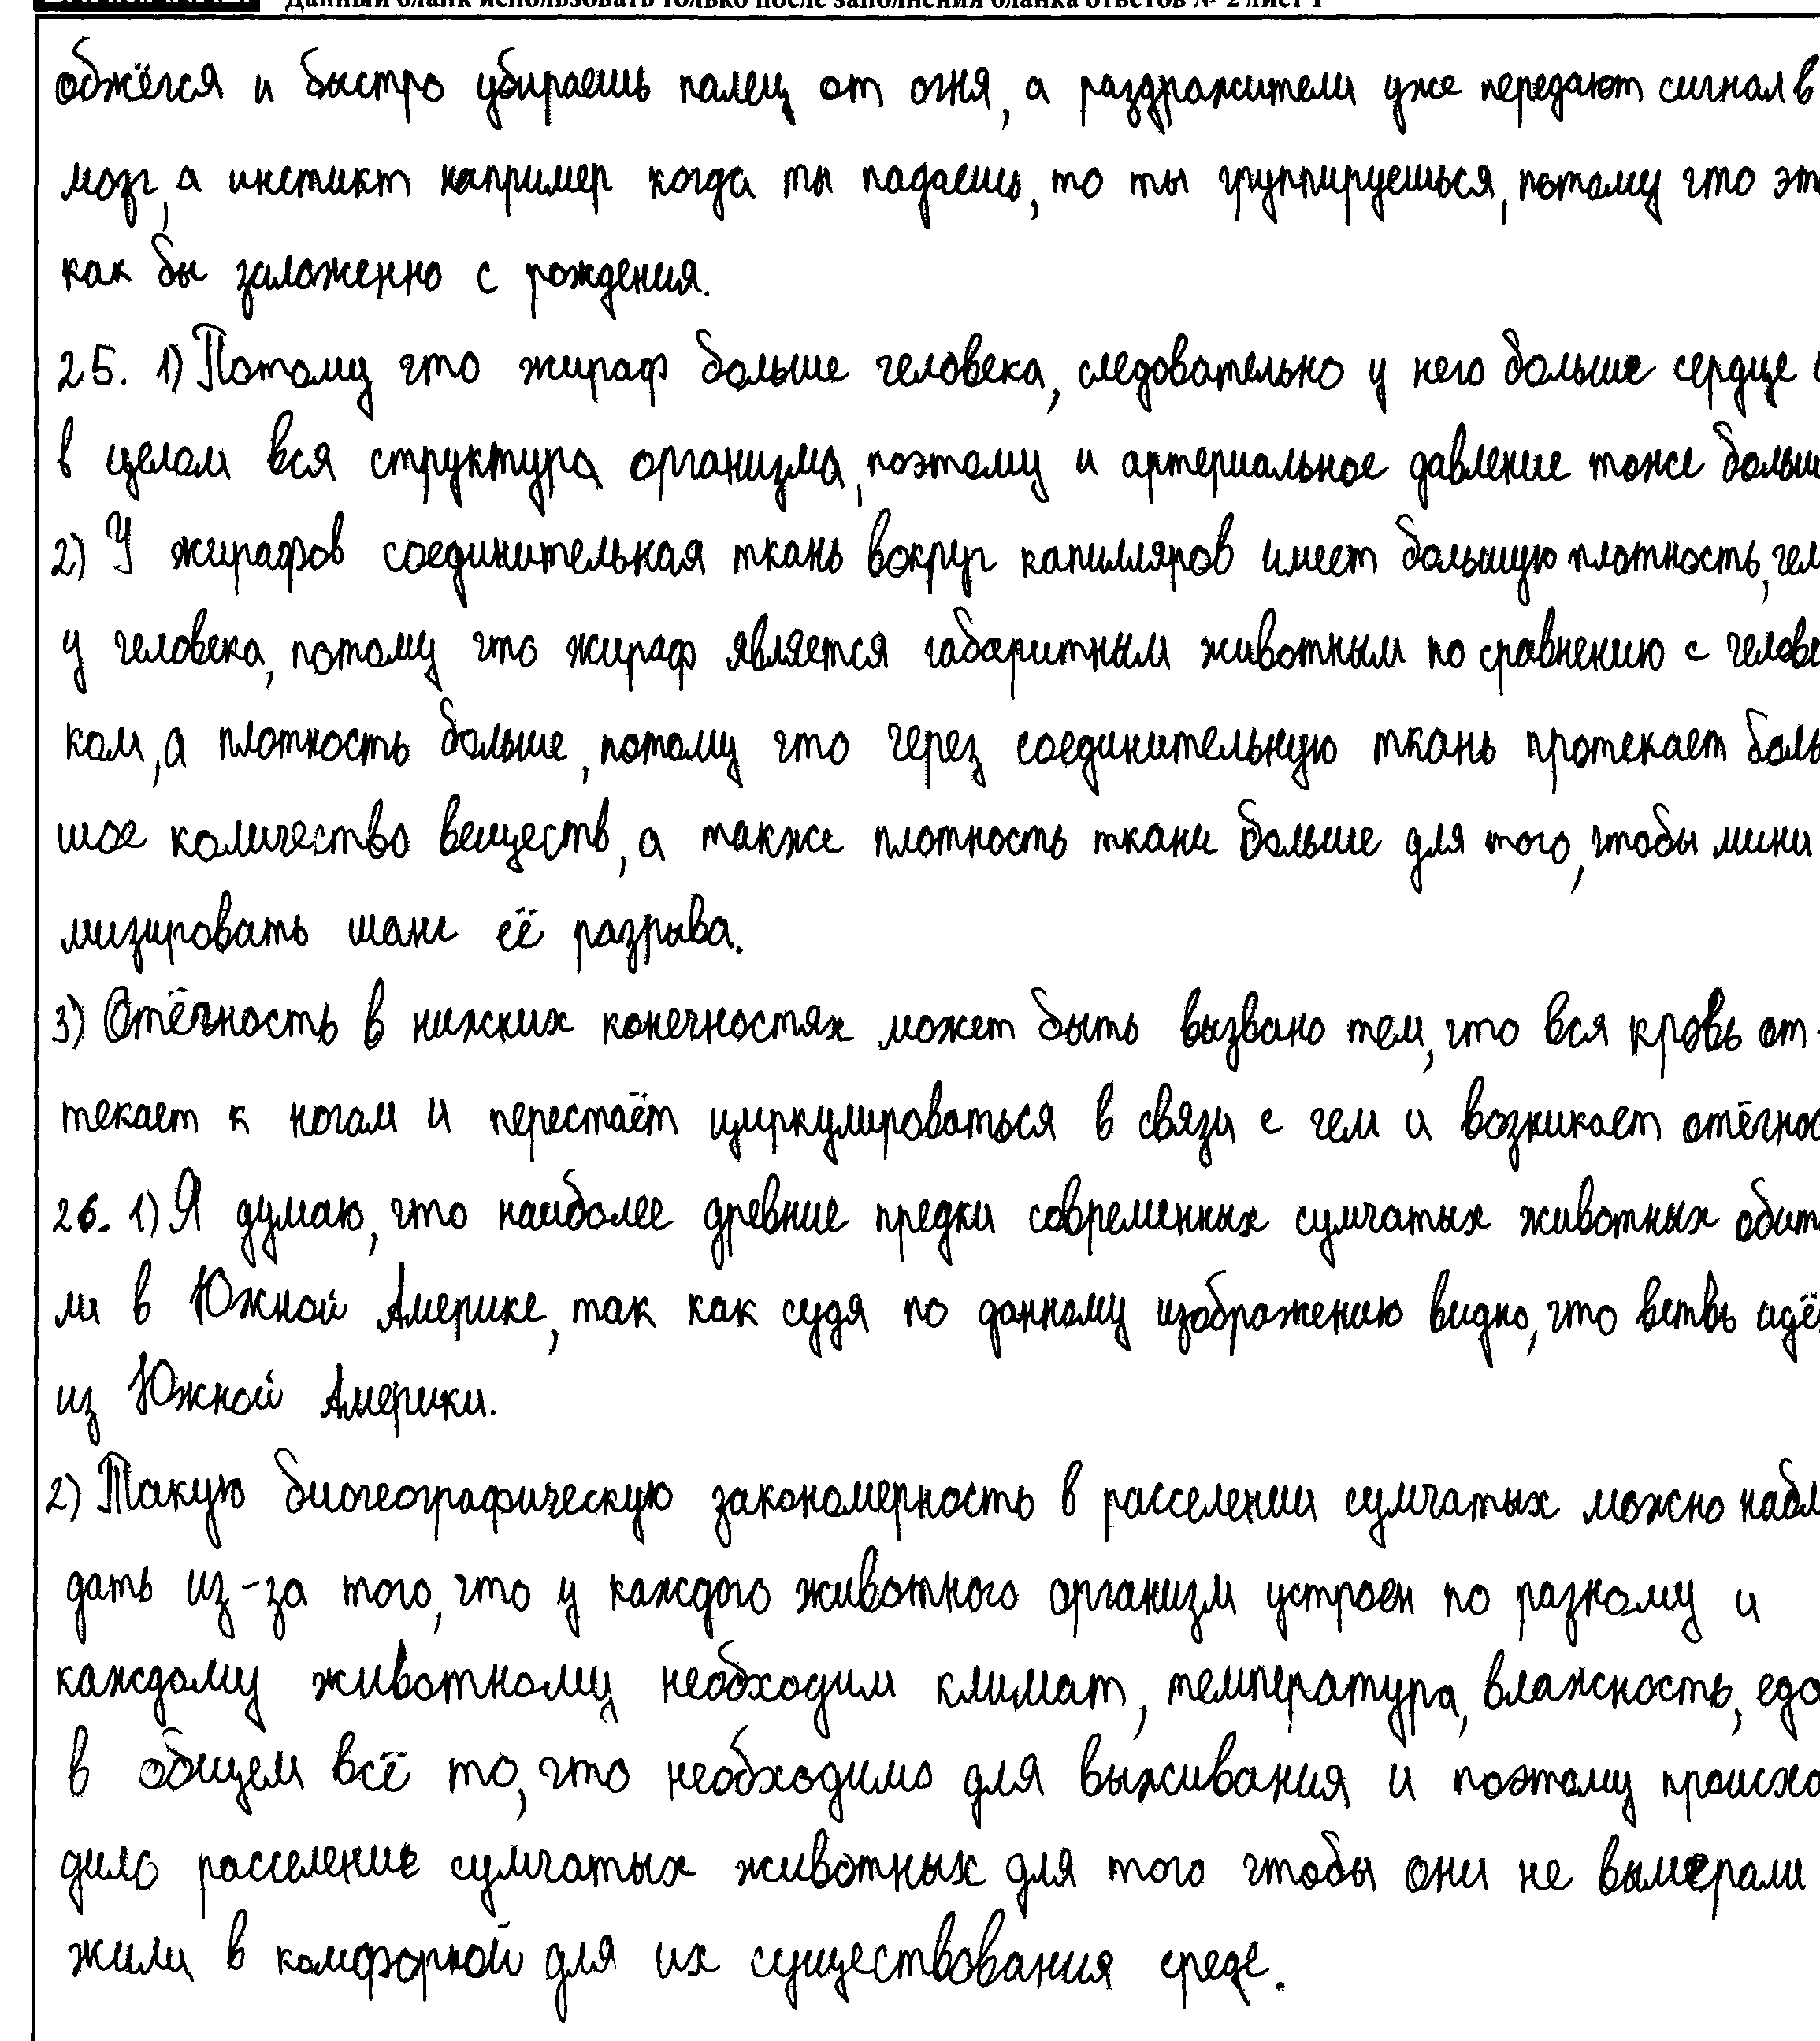 Данный бланк использовать только после заполнения бланка ответов № 2 лист 1
обжёгся и быстро убираешь палец от огня, а раздражители уже передают сигнал в
мозг, а инстикт например когда ты падаешь, то ты группируешься, потому что эт
как бы заложенно с рождения.
25. 1) Потому что жираф больше человека, следовательно у него больше сердце
в целом вся структура организма, поэтому и артериальное давление тоже больш
2) У жирафов соединительная ткань вокруг капилляров имеет большую плотность, чем
у человека, потому что жираф является габаритным животным по сравнению с челове
ком, а плотность больше, потому что через соединительную ткань протекает боль
шое количество веществ, а также плотность ткани больше для того, чтобы мини
мизировать шанс её разрыва.
3) Отёчность в нижних конечностях может быть вызвано тем, что вся кровь от-
текает к ногам и перестаёт циркулироваться в связи с чем и возникает отёчнос
26. 1) Я думаю, что наиболее древние предки современных сумчатых животных обит
ли в Южной Америке, так как судя по данному изображению видно, что ветвь идё
из Южной Америки.
2) Такую биогеографическую закономерность в расселении сумчатых можно набл
дать из-за того, что у каждого животного организм устроен по разному и
каждому животному необходим климат, температура, влажность, еда
в общем всё то, что необходимо для выживания и поэтому происхо
дило расселение сумчатых животных для того чтобы они не вымерали
жили в комфорной для их существования среде.